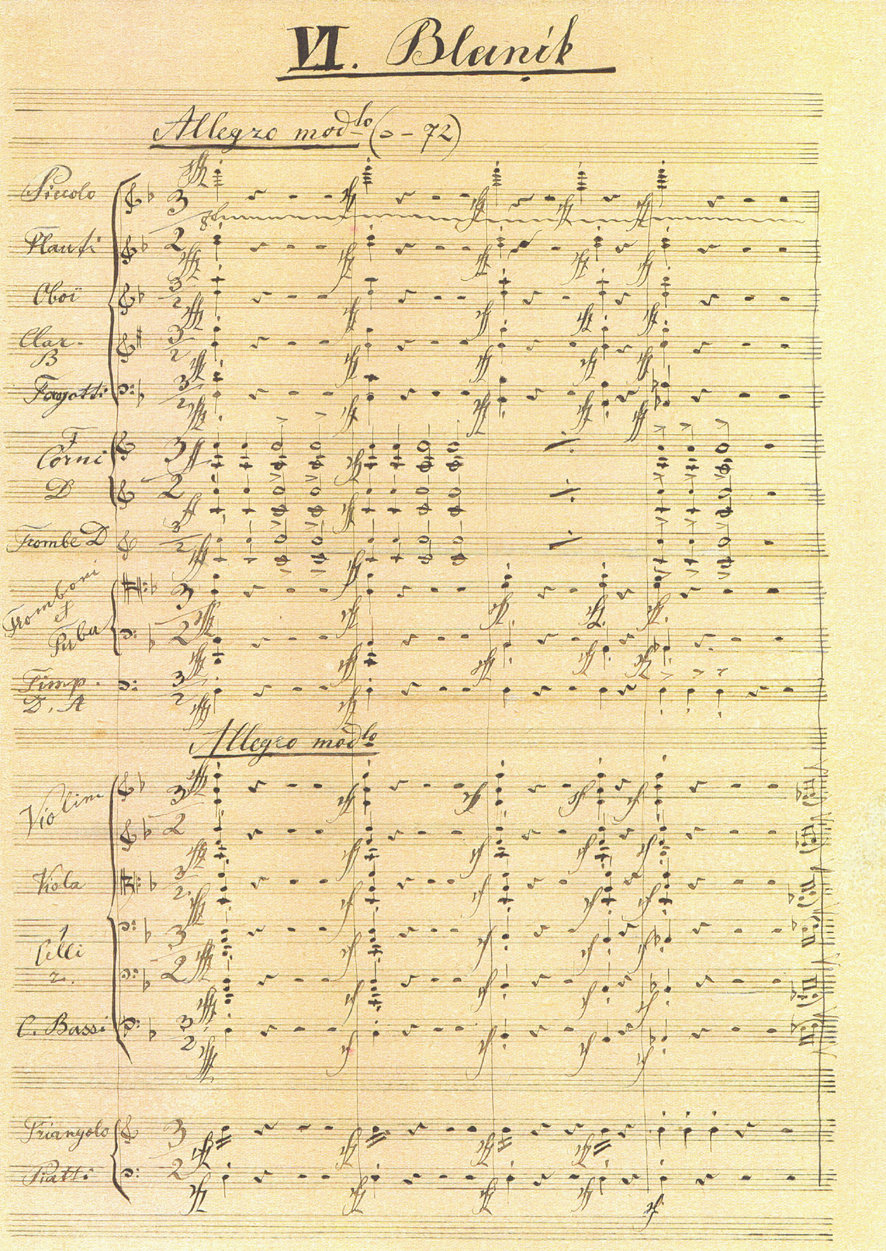 VI. Blanik
Allegro mod<sup>lo</sup> (𝅗𝅥 - 72)
Piccolo
Flauti
Oboi
Clar.
B
Fagotti
F
Corni
D
Trombe D
Tromboni
et
Tuba
Timp.
D. A
Allegro mod<sup>lo</sup>
Violini
Viola
1
Celli
2.
C. Bassi
Triangolo
Piatti